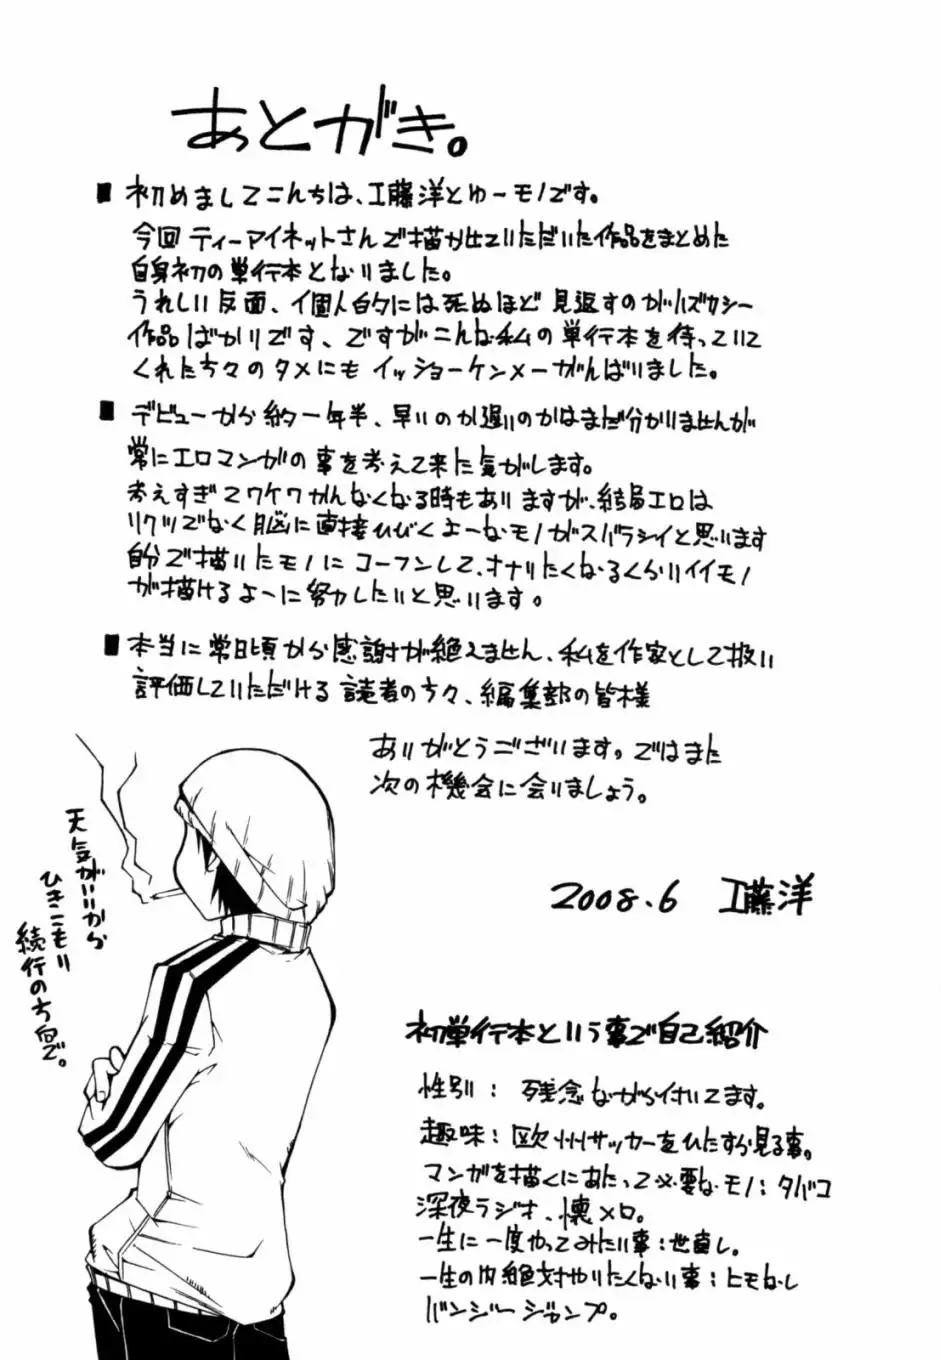 あとがき。
■初めましてこんちは、工藤洋とゆーモノです。
今回ティーアイネットさんで描かせていただいた作品をまとめた
自身初の単行本となりました。
うれしい反面、個人的には死ぬほど見返すのがハズカシー
作品ばかりです、ですがこんな私の単行本を待っていて
くれた方々のタメにもイッショーケンメーがんばりました。
■デビューから約一年半、早いのか遅いのかはまだ分かりませんが
常にエロマンガの事を考えて来た気がします。
考えすぎてワケワカんなくなる時もありますが、結局エロは
リクツでなく脳に直接ひびくよーなモノがスバラシイと思います
自分で描いたモノにコーフンして、オナりたくなるくらいイイモノ
が描けるよーに努力したいと思います。
■本当に常日頃から感謝が絶えません、私を作家として扱い
評価していただける読者の方々、編集部の皆様
ありがとうございます。ではまた
次の機会に会いましょう。
2008.6 工藤洋
天気がいいから
ひきこもり
続行の方向で。
初単行本という事で自己紹介
性別：残念ながら付いてます。
趣味：欧州サッカーをひたすら見る事。
マンガを描くにあたって必要なモノ：タバコ
深夜ラジオ、懐メロ。
一生に一度やってみたい事：世直し。
一生の内絶対やりたくない事：ヒモなし
バンジージャンプ。